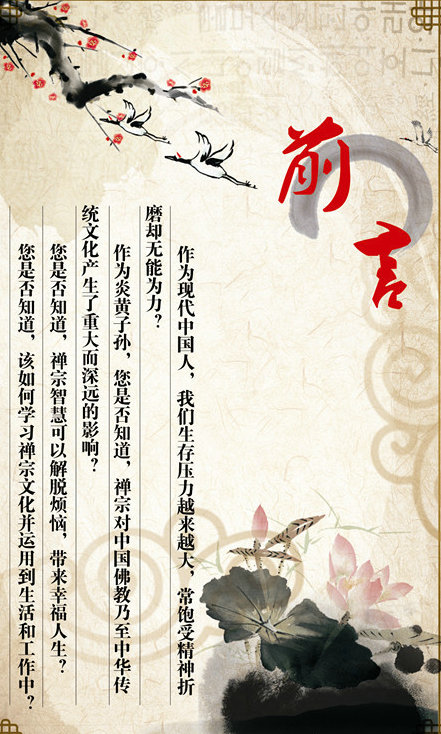 前言
作为现代中国人，我们生存压力越来越大，常饱受精神折
磨却无能为力？
作为炎黄子孙，您是否知道，禅宗对中国佛教乃至中华传
统文化产生了重大而深远的影响？
您是否知道，禅宗智慧可以解脱烦恼，带来幸福人生？
您是否知道，该如何学习禅宗文化并运用到生活和工作中？